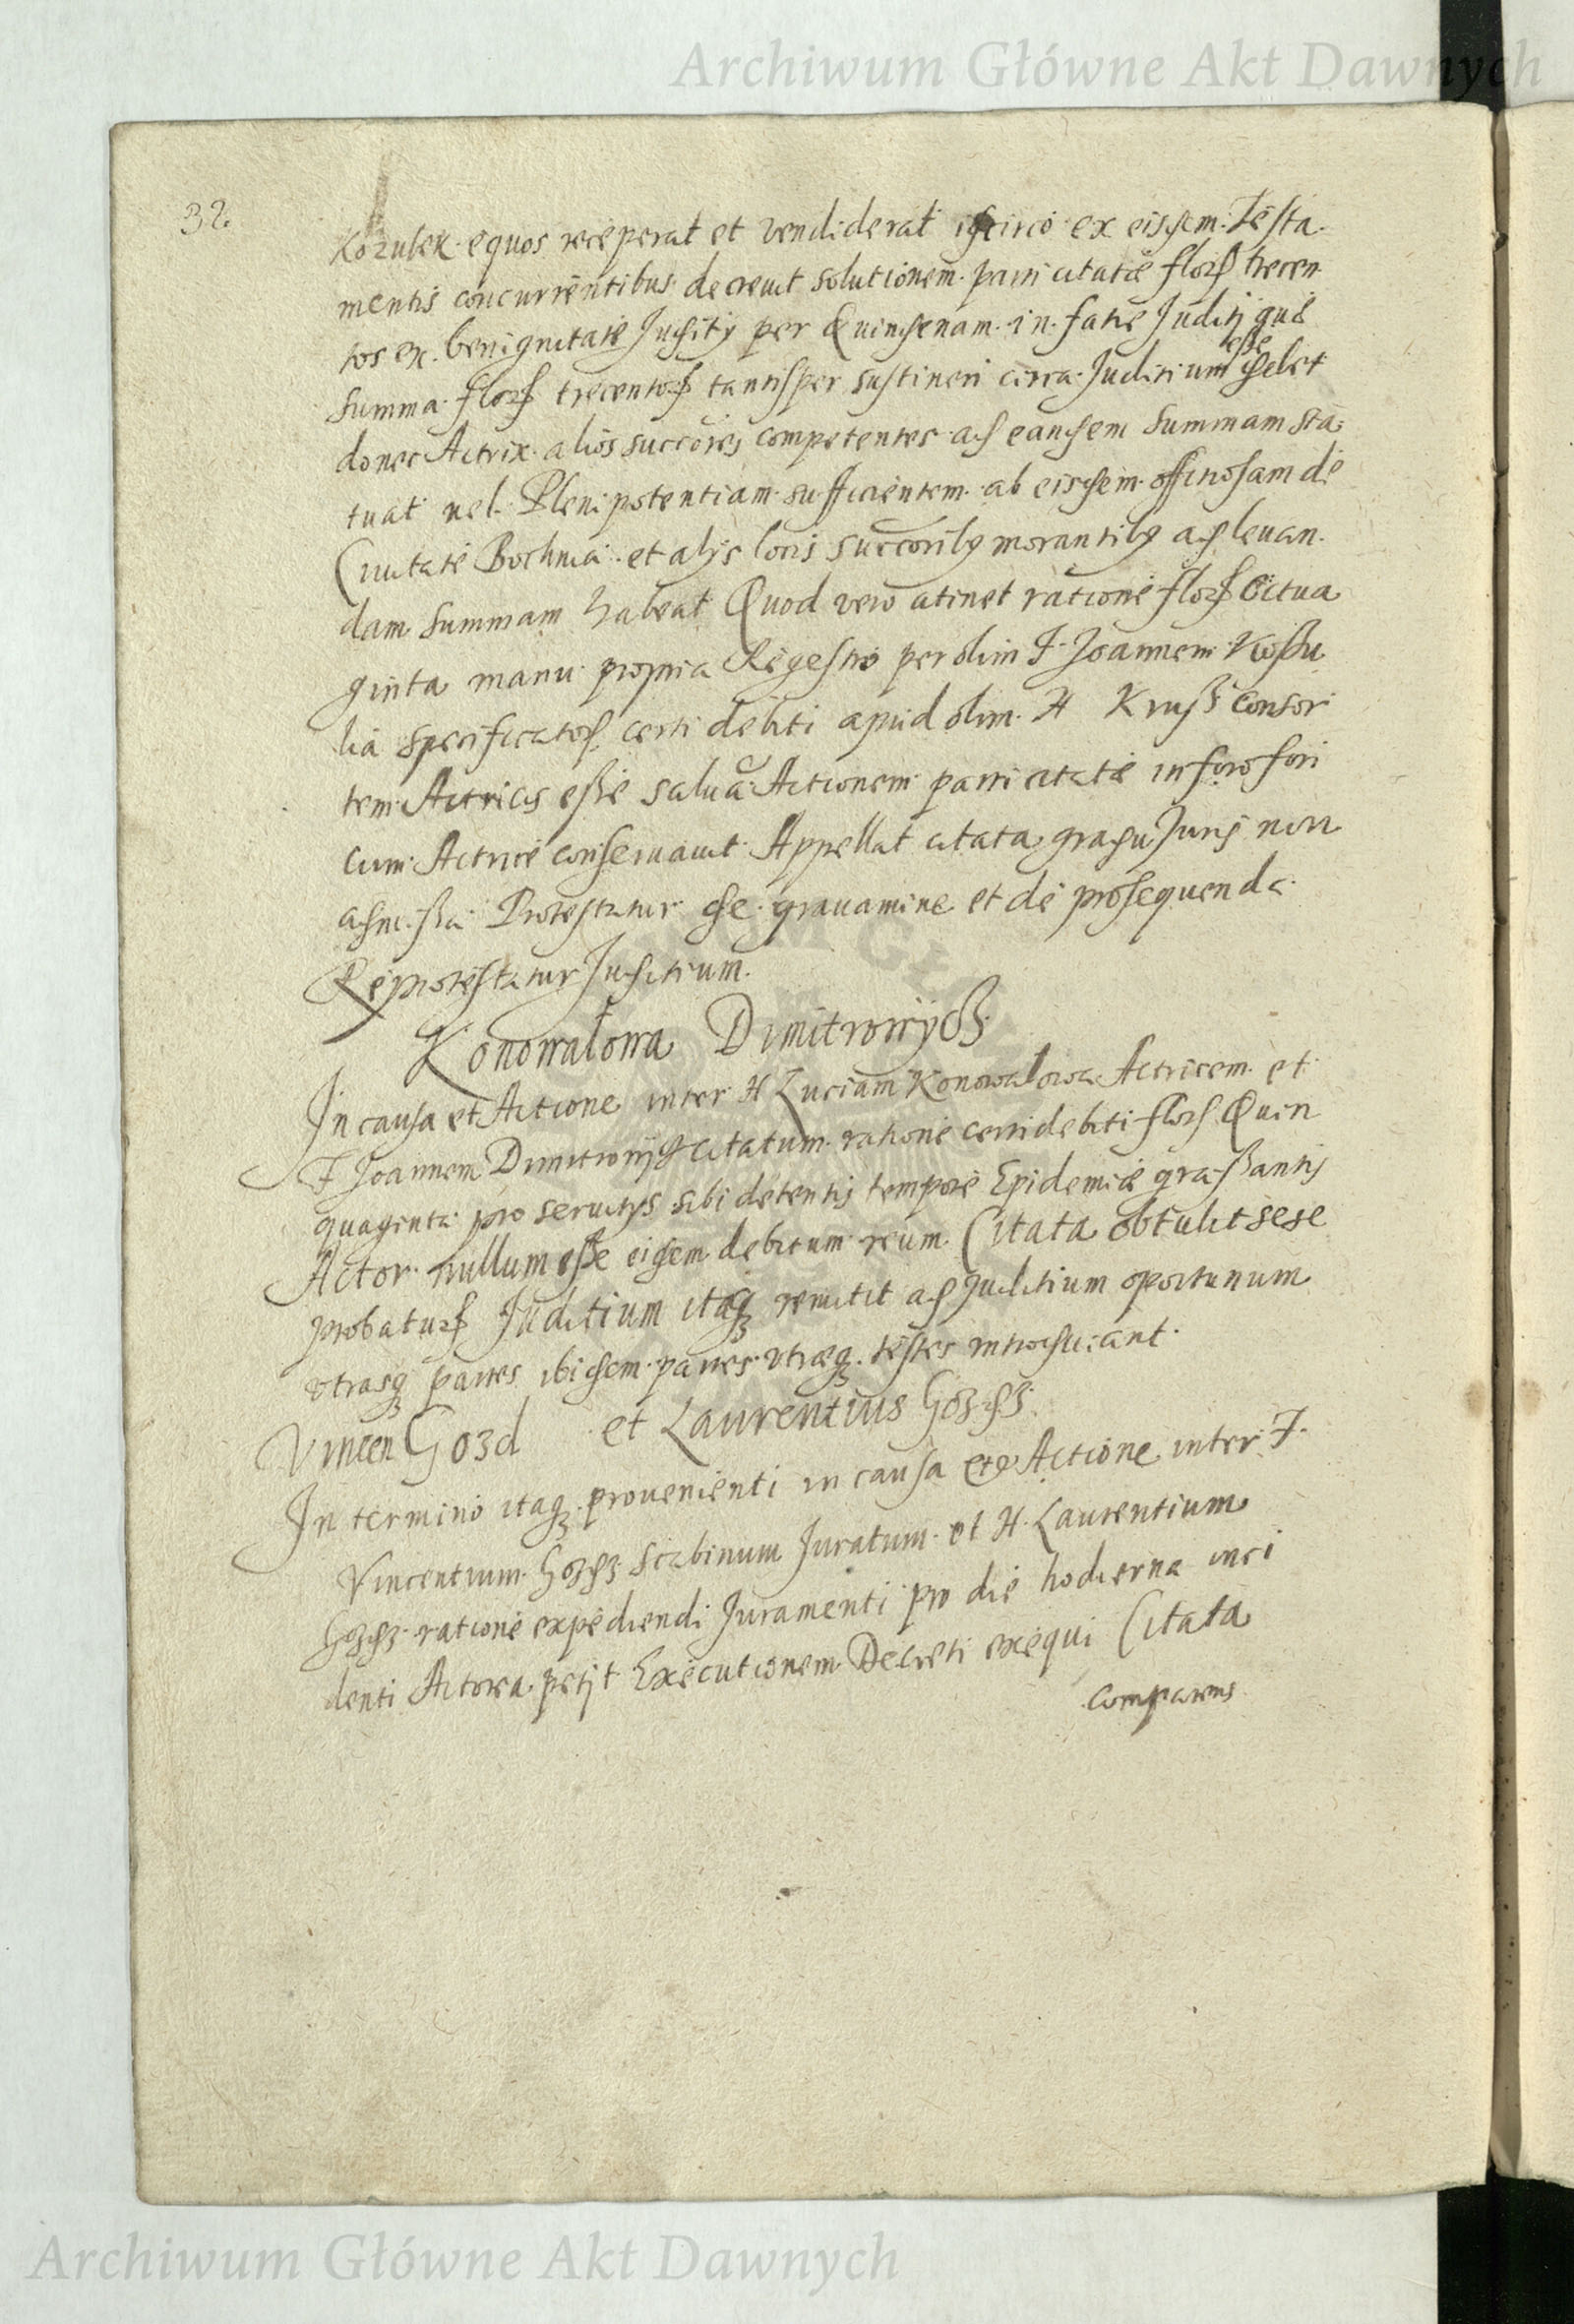 Archiwum Główne Akt Dawnych
32.
Kozulek equos receperat et vendiderat idcirco ex eisdem Testa
mentis concurrentibus decreuit solutionem parti citatæ flor trecen
tos ex benignitate Juditij per Quindenam in facie Juditij quæ
summa flor trecentor tantisper sustineri circa Juditium esse debet
donec Actrix alios succores competentes ad eandem summam sta
tuat vel Plenipotentiam sufficientem ab eisdem officiosam de
Ciuitate Bochnia et alijs locis succorib morantib ad leuan
dam summam habeat Quod vero atinet ratione flor Octua
ginta manu propria Regestro per olim F. Joannem Koszu
lia specificator certi debiti apud olim H Krusz consor
tem Actricis esse salua Actionem parti citatæ in foro fori
cum Actrice conseruauit Appellat citata gradu Juris non
admissa Protestatur de grauamine et de prosequenda
Reprotestatur Juditium.
Konowałowa Dimitrowÿch
In causa et Actione inter H Luciam Konowalowa Actricem et
F Joannem Dimitrowijch citatum ratione certi debiti flor Quin
quaginta pro seruitijs sibi detentis tempore Epidemiæ grassantis
Actor nullum esse eidem debitum reum Citata obtulit sese
probatur Juditium itaq remitit ad Juditium oportunum
vtrasq partes ibidem partes vtræq testes introducant.
Vincen Gozd et Laurentius Gozdz
In termino itaq prouenienti in causa et Actione inter F.
Vincentium Gozdz Scabinum Juratum et H. Laurentium
Gozdz ratione expediendi Juramenti pro die hodierna inci
denti Actorea petijt Executionem Decreti exequi Citata
comparens
Archiwum Główne Akt Dawnych